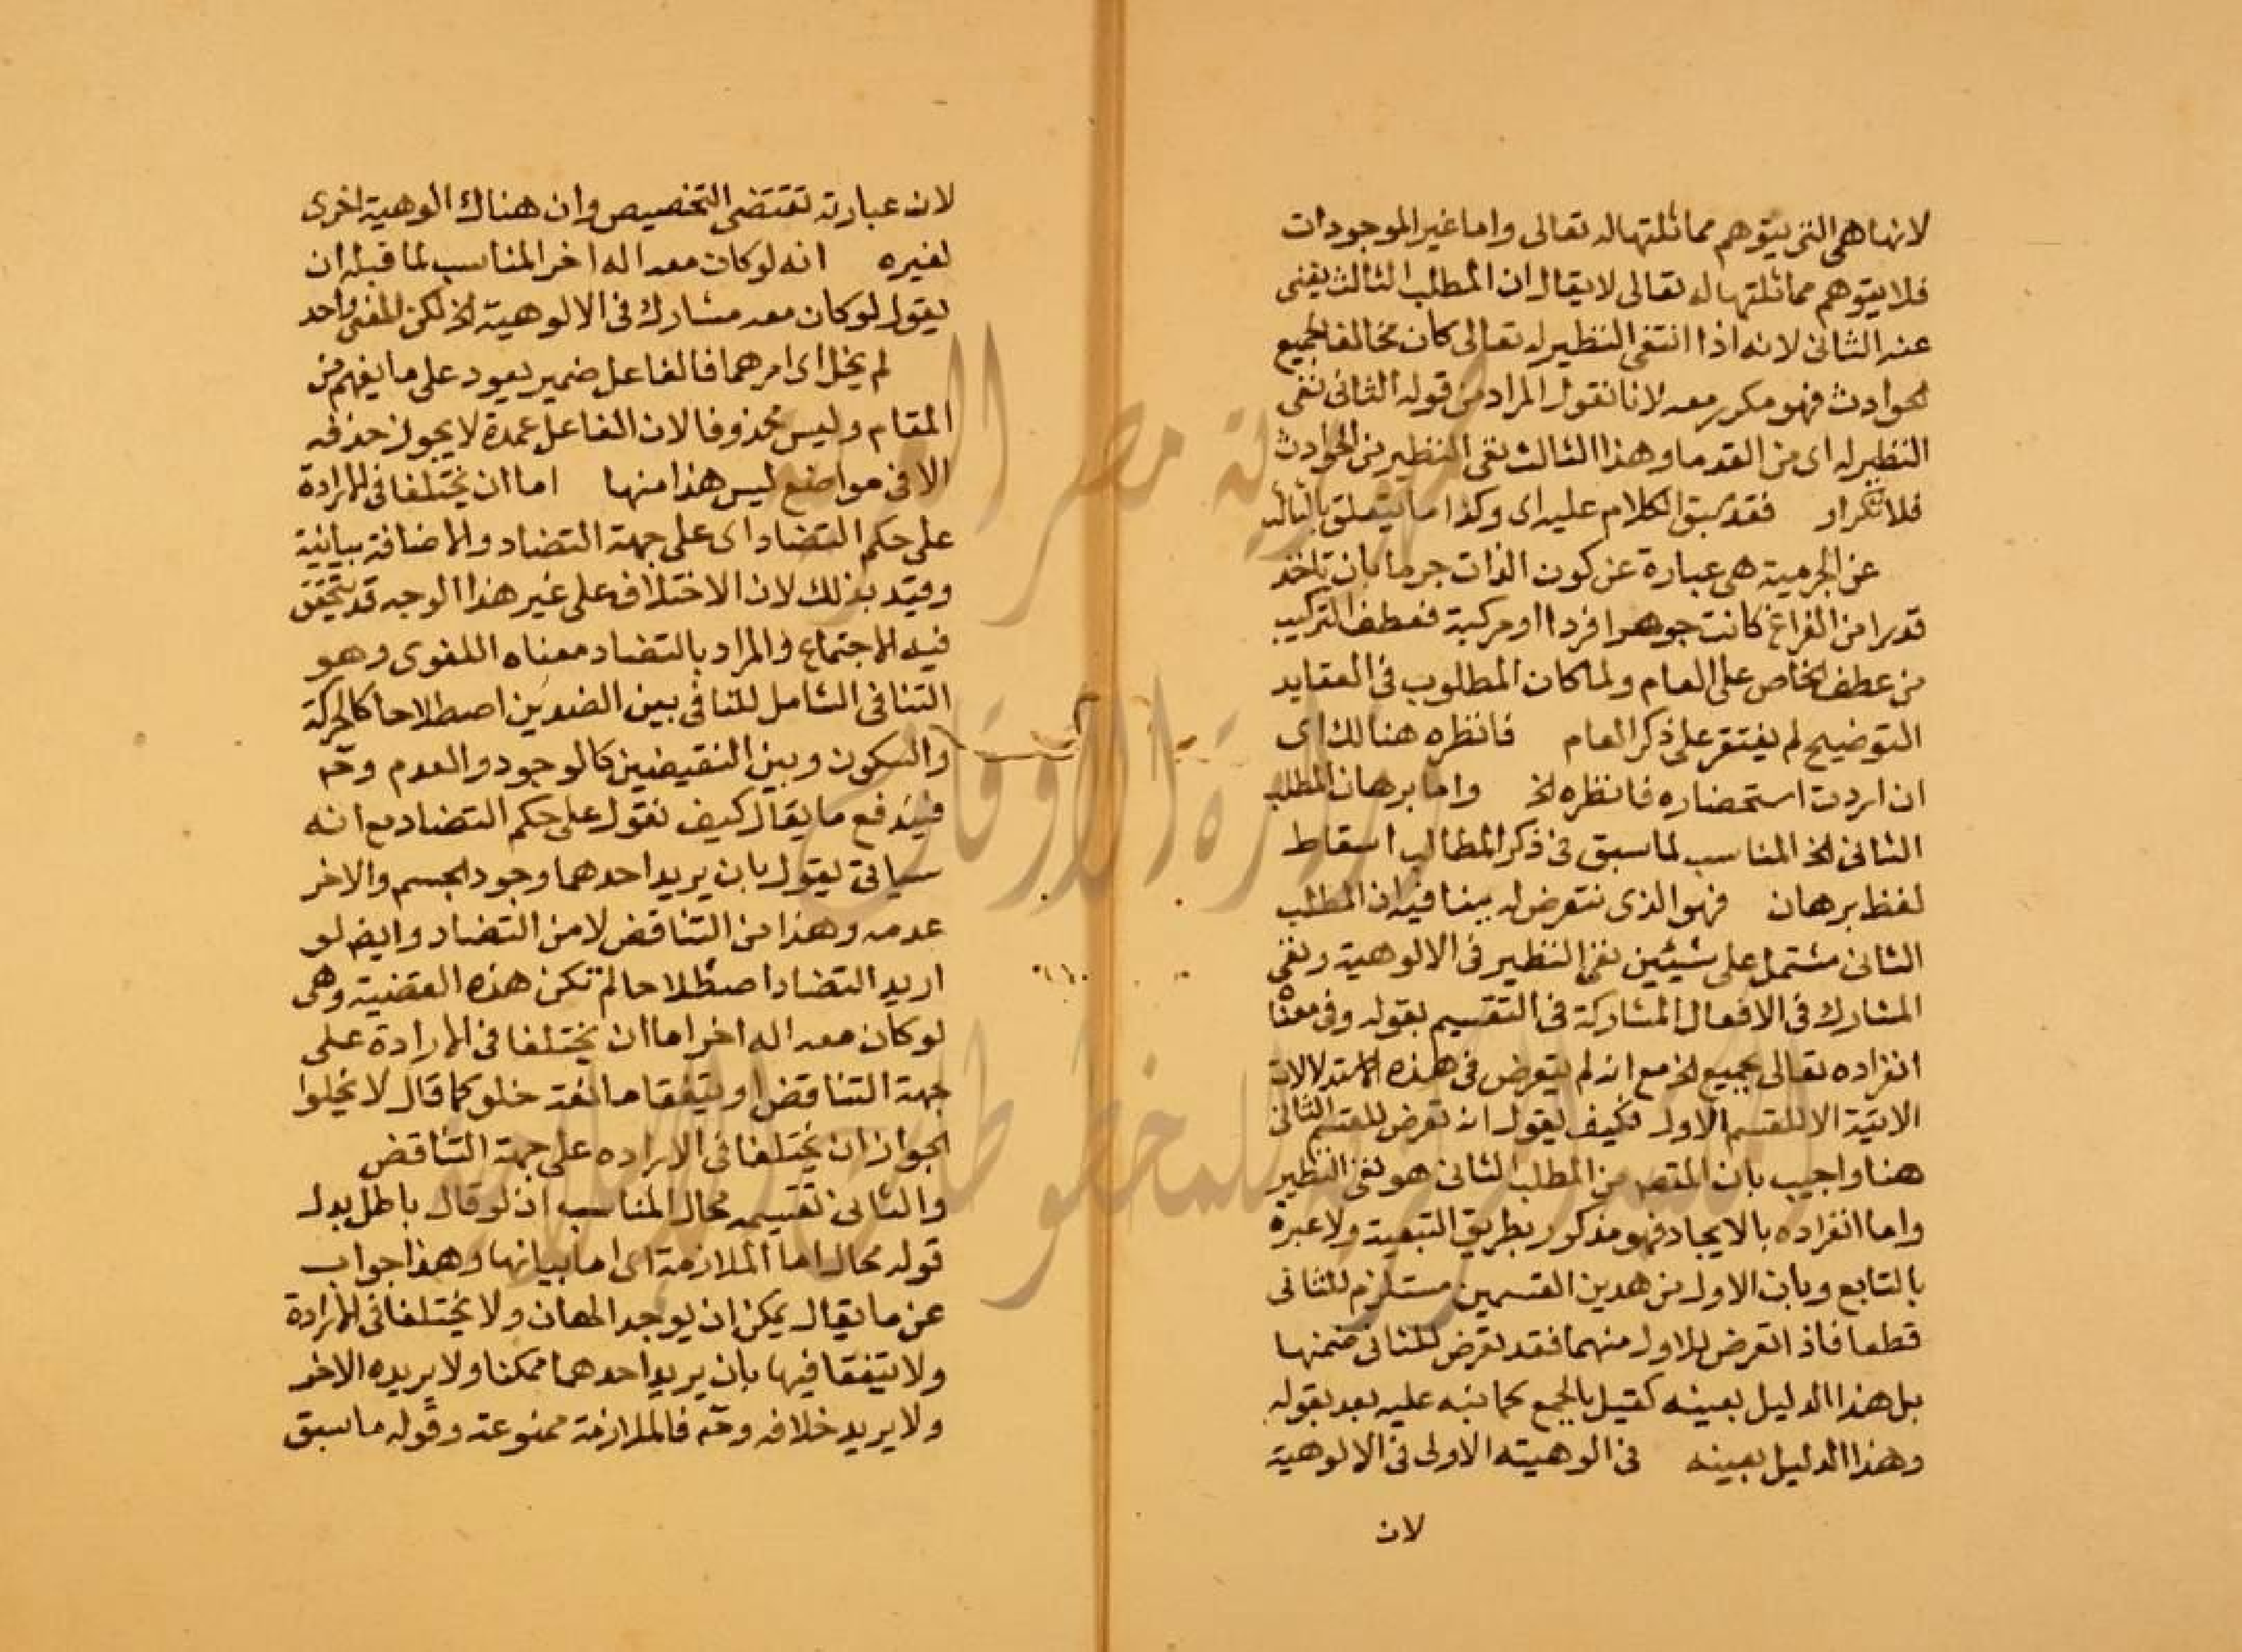 لانها هي التي يتوهم مماثلتها له تعالى واما غير الموجودات
فلا يتوهم مماثلتها له تعالى لا يقال ان المطلب الثالث يغني
عنه الثاني لانه اذا انتفى النظير له تعالى كان مخالفا لجميع
الحوادث فهو مكرر معه لانا نقول المراد من قوله الثاني نفي
النظير له اي من القدما وهذا الثالث نفي النظير من الحوادث
فلا تكرار فقد سبق الكلام عليه اي وكذا ما يتعلق بالثالث
عن الجرمية هي عبارة عن كون الذات جرما بان تاخذ
قدرا من الفراغ كانت جوهرا فردا او مركبة فعطف التركيب
من عطف الخاص على العام ولما كان المطلوب في العقايد
التوضيح لم يفتقر على ذكر العام فانظره هنالك اي
ان اردت استحضاره فانظره الخ واما برهان المطلب
الثاني الخ المناسب لما سبق في ذكر المطالب اسقاط
لفظ برهان فهو الذي نتعرض له بينا فيه ان المطلب
الثاني مشتمل على شيئين نفي النظير في الالوهية ونفي
المشارك في الافعال المشاركة في التقسيم بقوله وفي معناه
انفراده تعالى بجميع الخ مع انه لم يتعرض في هذه الاستدلالات
الاتية الا للقسم الاول فكيف يقول انه تعرض للقسم الثاني
هنا واجيب بان المقصد من المطلب الثاني هو نفي النظير
واما انفراده بالايجاد فهو مذكور بطريق التبعية ولا عبرة
بالتابع وبان الاول من هدين القسمين مستلزم للثاني
قطعا فاذ اتعرض للاول منهما فقد تعرض للثاني ضمنها
بل هذا الدليل بعينه كفيل بالجمع كما نبه عليه بعد بقوله
وهذا الدليل بعينه في الوهيته الاولى في الالوهية
لان
لان عبارته تقتضي التخصيص وان هناك الوهية اخرى
لغيره انه لو كان معه اله اخر المناسب لما قبله ان
يقول لو كان معه مشارك في الالوهية الخ لكن المعنى واحد
لم يخل اي امرهما فالفاعل ضمير يعود على ما يفهم من
المقام وليس محذوفا لان الفاعل عمدة لا يجوز حذفه
الا في مواضع ليس هذا منها اما ان يختلفا في الارادة
على حكم التضاد اي على جهة التضاد والاضافة بيانية
وقيد بذلك لان الاختلاف على غير هذا الوجه قد يتحقق
فيه الاجتماع والمراد بالتضاد معناه اللغوي وهو
التنافي الشامل للتنافي بين الضدين اصطلاحا كالحركة
والسكون وبين النقيضين كالوجود والعدم وحَه
فيندفع ما يقال كيف نقول على حكم التضاد مع انه
سياتي يقول بان يريد احدهما وجود الجسم والاخر
عدمه وهذا من التناقض لا من التضاد وايضه لو
اريد التضاد اصطلاحا لم تكن هذه القضية وهي
لو كان معه اله اخر اما ان يختلفا في الارادة على
جهة التناقض او يتفقا مانعة خلو كما قال لا يخلوا
لجواز ان يختلفا في الاراده على جهة التناقض
والثاني تقسيمه محال المناسب اذ لو قال باطل بدل
قوله محال اما الملازمة اي اما بيانها وهذا جواب
عن ما يقال يمكن ان يوجد الهان ولا يختلفا في الارادة
ولا يتفقا فيها بان يريد احدهما ممكنا ولا يريده الاخر
ولا يريد خلافه وحَه فالملازمة ممنوعة وقوله ما سبق